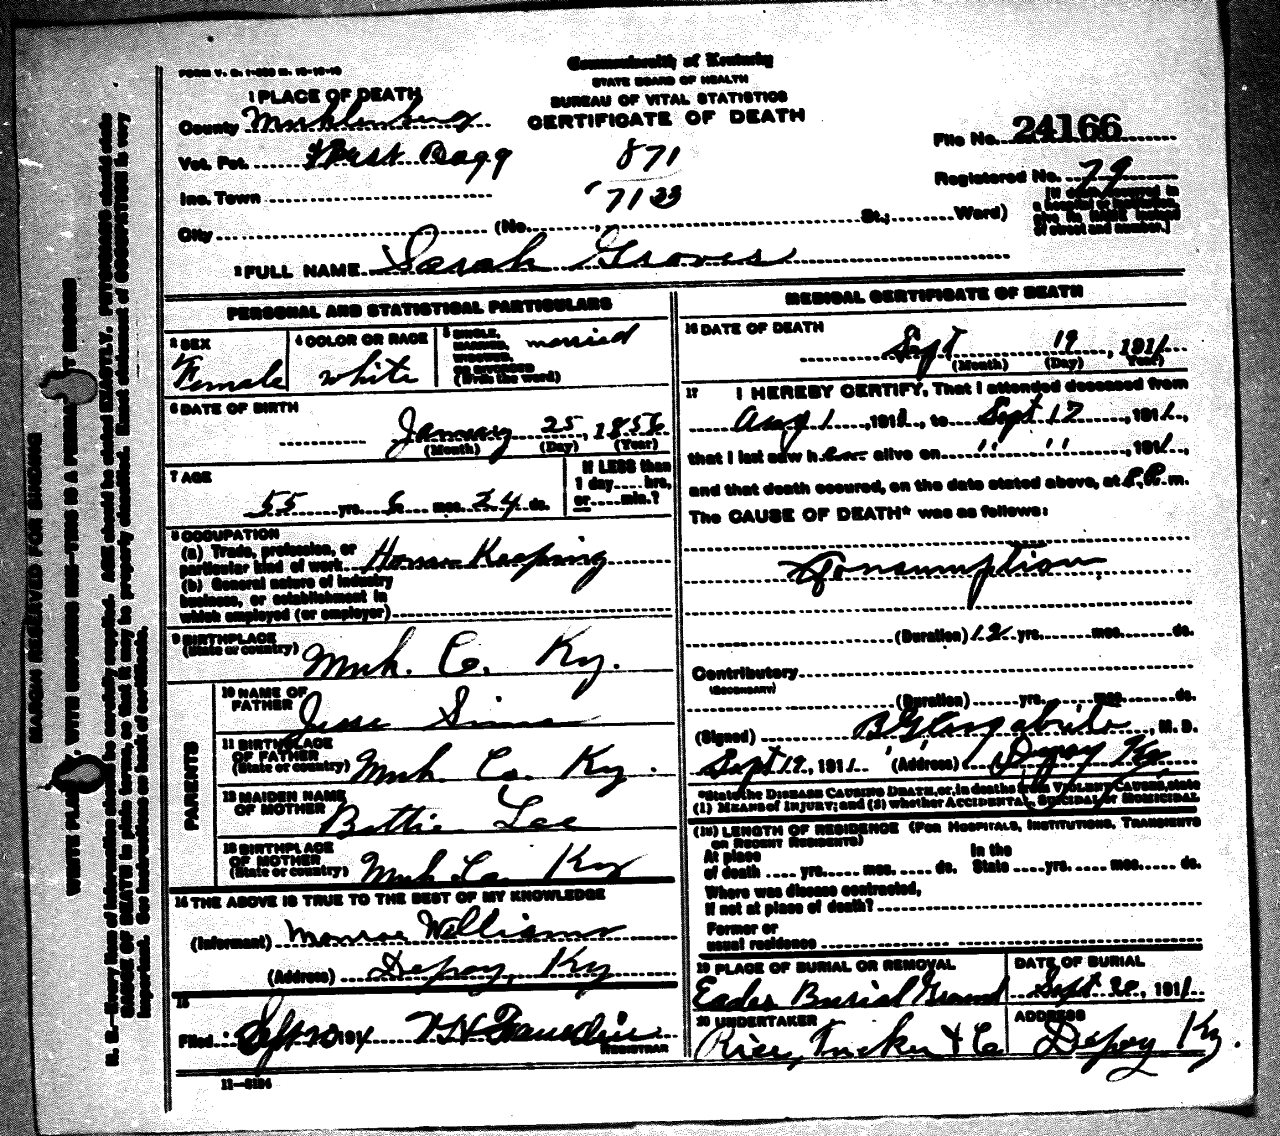 FORM V. S. 1-200 M. 10-10-10
Commonwealth of Kentucky
STATE BOARD OF HEALTH
BUREAU OF VITAL STATISTICS
CERTIFICATE OF DEATH
1 PLACE OF DEATH
County Muhlenburg
Vot. Pct. West Bagg
Inc. Town
City (No. St.; Ward)
871
7133
File No. 24166
Registered No. 79
[If death occurred in
a hospital or institution,
give its NAME instead
of street and number.]
2 FULL NAME Sarah Groves
PERSONAL AND STATISTICAL PARTICULARS
3 SEX
Female
4 COLOR OR RACE
White
5 SINGLE,
MARRIED,
WIDOWED,
OR DIVORCED
(Write the word)
married
6 DATE OF BIRTH
January 25, 1856
(Month) (Day) (Year)
7 AGE
55 yrs. mos. 24 ds.
If LESS than
1 day.... hrs,
or.... min.?
8 OCCUPATION
(a) Trade, profession, or
particular kind of work House Keeping
(b) General nature of industry
business, or establishment in
which employed (or employer)
9 BIRTHPLACE
(State or country) Muh. Co. Ky.
PARENTS
10 NAME OF
FATHER Jesse Sims
11 BIRTHPLACE
OF FATHER
(State or country) Muh. Co. Ky.
12 MAIDEN NAME
OF MOTHER Bettie Lee
13 BIRTHPLACE
OF MOTHER
(State or country) Muh Co. Ky
14 THE ABOVE IS TRUE TO THE BEST OF MY KNOWLEDGE
(Informant) Monroe Williams
(Address) Depoy, Ky
15
Filed Sept 20 191
REGISTRAR
11-3184
MEDICAL CERTIFICATE OF DEATH
16 DATE OF DEATH
Sept 19, 1911
(Month) (Day) Year)
17 I HEREBY CERTIFY, That I attended deceased from
Aug 1, 1911, to Sept 17, 1911,
that I last saw h er alive on " ", 1911,
and that death occured, on the date stated above, at 8 P. m.
The CAUSE OF DEATH* was as follows:
Consumption
(Duration) 12 yrs. mos. ds.
Contributory
(SECONDARY)
(Duration) yrs. mos. ds.
(Signed) , M. D.
Sept 19, 1911. (Address) Depoy Ky
*State the DISEASE CAUSING DEATH, or, in deaths from VIOLENT CAUSES, state
(1) MEANS of INJURY; and (2) whether ACCIDENTAL, SUICIDAL or HOMICIDAL
(18) LENGTH OF RESIDENCE (FOR HOSPITALS, INSTITUTIONS, TRANSIENTS
OR RECENT RESIDENTS)
At place In the
of death yrs. mos. ds. State yrs. mos. ds.
Where was disease contracted,
If not at place of death?
Former or
usual residence
19 PLACE OF BURIAL OR REMOVAL
Eades Burial Ground
DATE OF BURIAL
Sept 20, 1911
20 UNDERTAKER
Rice, Tucker & Co
ADDRESS
Depoy Ky.
MARGIN RESERVED FOR BINDING
WRITE PLAINLY, WITH UNFADING INK—THIS IS A PERMANENT RECORD
N. B.—Every item of information should be carefully supplied. AGE should be stated EXACTLY. PHYSICIANS should state
CAUSE OF DEATH in plain terms, so that it may be properly classified. Exact statement of OCCUPATION is very
important. See instructions on back of certificate.